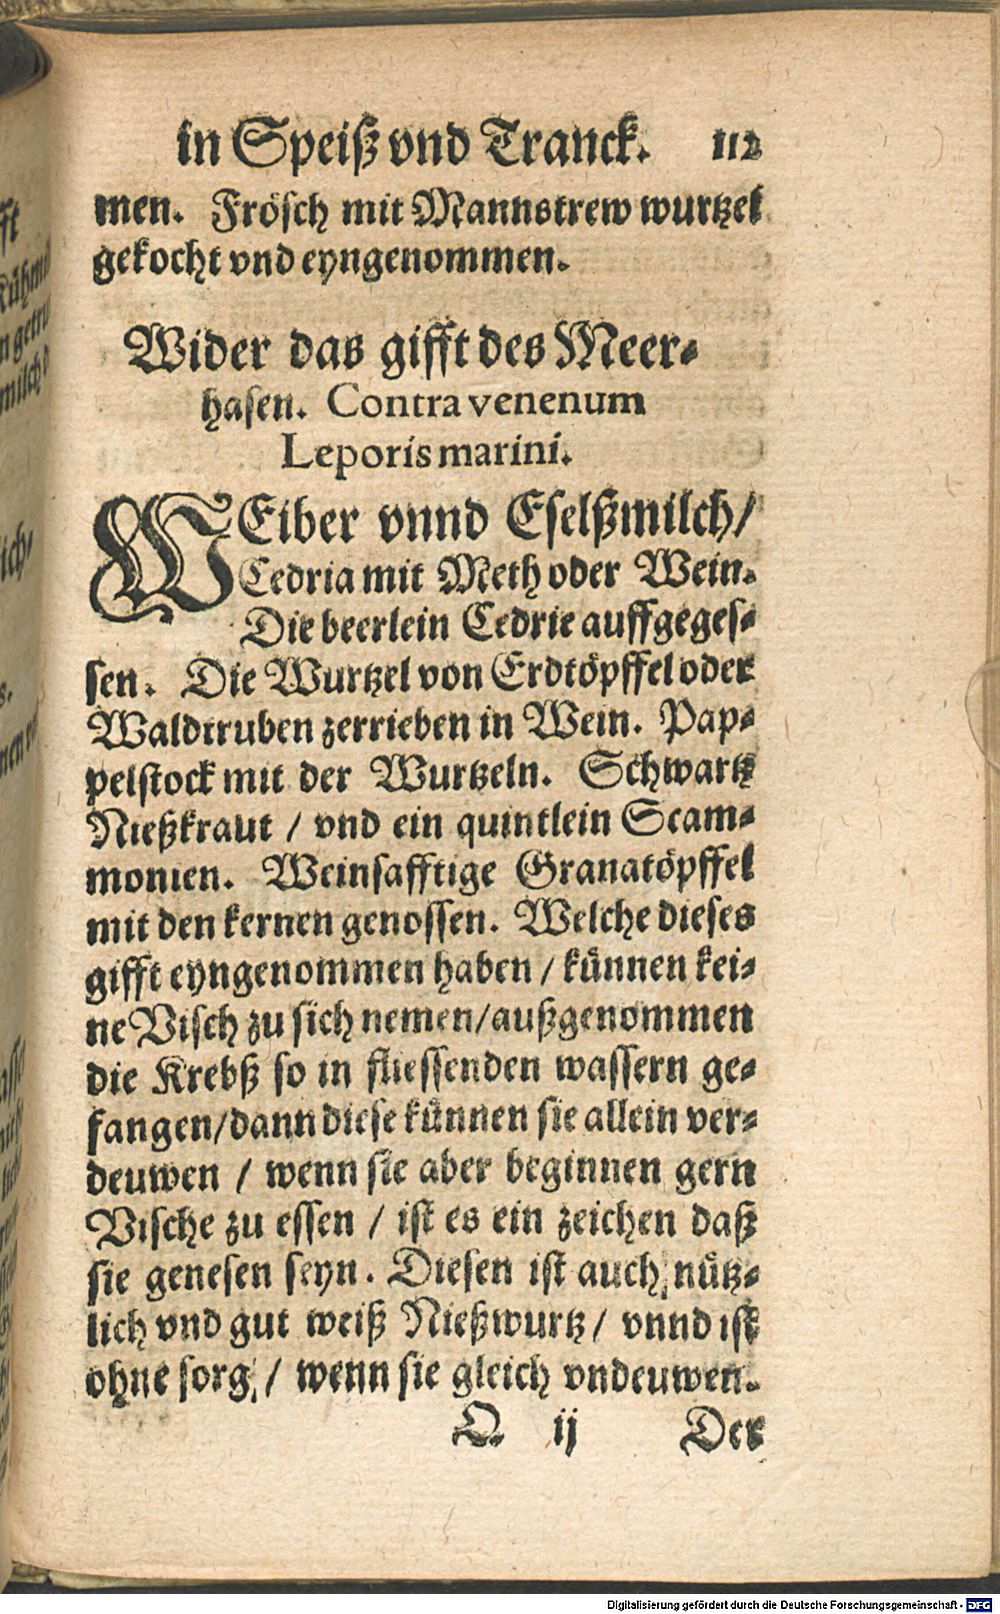 in Speiß vnd Tranck. 112
men. Frösch mit Mannstrew wurtzel
gekocht vnd eyngenommen.
Wider das gifft des Meer-
hasen. Contra venenum
Leporis marini.
WEiber vnnd Eselßmilch/
Cedria mit Meth oder Wein.
Die beerlein Cedrie auffgeges-
sen. Die Wurtzel von Erdtöpffel oder
Waldtruben zerrieben in Wein. Pap-
pelstock mit der Wurtzeln. Schwartz
Nießkraut / vnd ein quintlein Scam-
monien. Weinsafftige Granatöpffel
mit den kernen genossen. Welche dieses
gifft eyngenommen haben / künnen kei-
ne Visch zu sich nemen/außgenommen
die Krebß so in fliessenden wassern ge-
fangen/dann diese künnen sie allein ver-
deuwen / wenn sie aber beginnen gern
Vische zu essen / ist es ein zeichen daß
sie genesen seyn. Diesen ist auch nütz-
lich vnd gut weiß Nießwurtz / vnnd ist
ohne sorg / wenn sie gleich vndeuwen.
Q ij Der
Digitalisierung gefördert durch die Deutsche Forschungsgemeinschaft - DFG